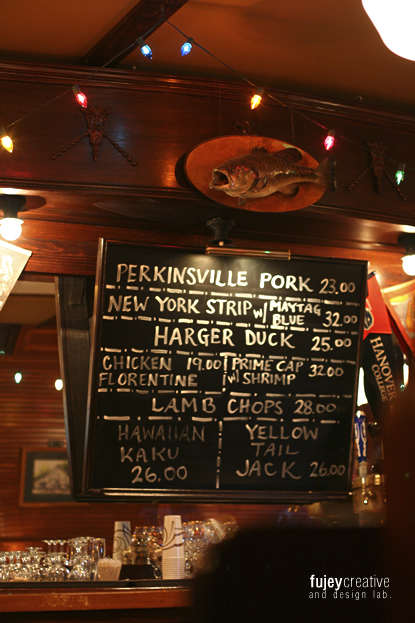 PERKINSVILLE PORK 23.00
NEW YORK STRIP w/ MAYTAG BLUE 32.00
HARGER DUCK 25.00
CHICKEN FLORENTINE 19.00
PRIME CAP w/ SHRIMP 32.00
LAMB CHOPS 28.00
HAWAIIAN
KAKU
26.00
YELLOW
TAIL
JACK 26.00
HANOVER
fujeycreative
and design lab.